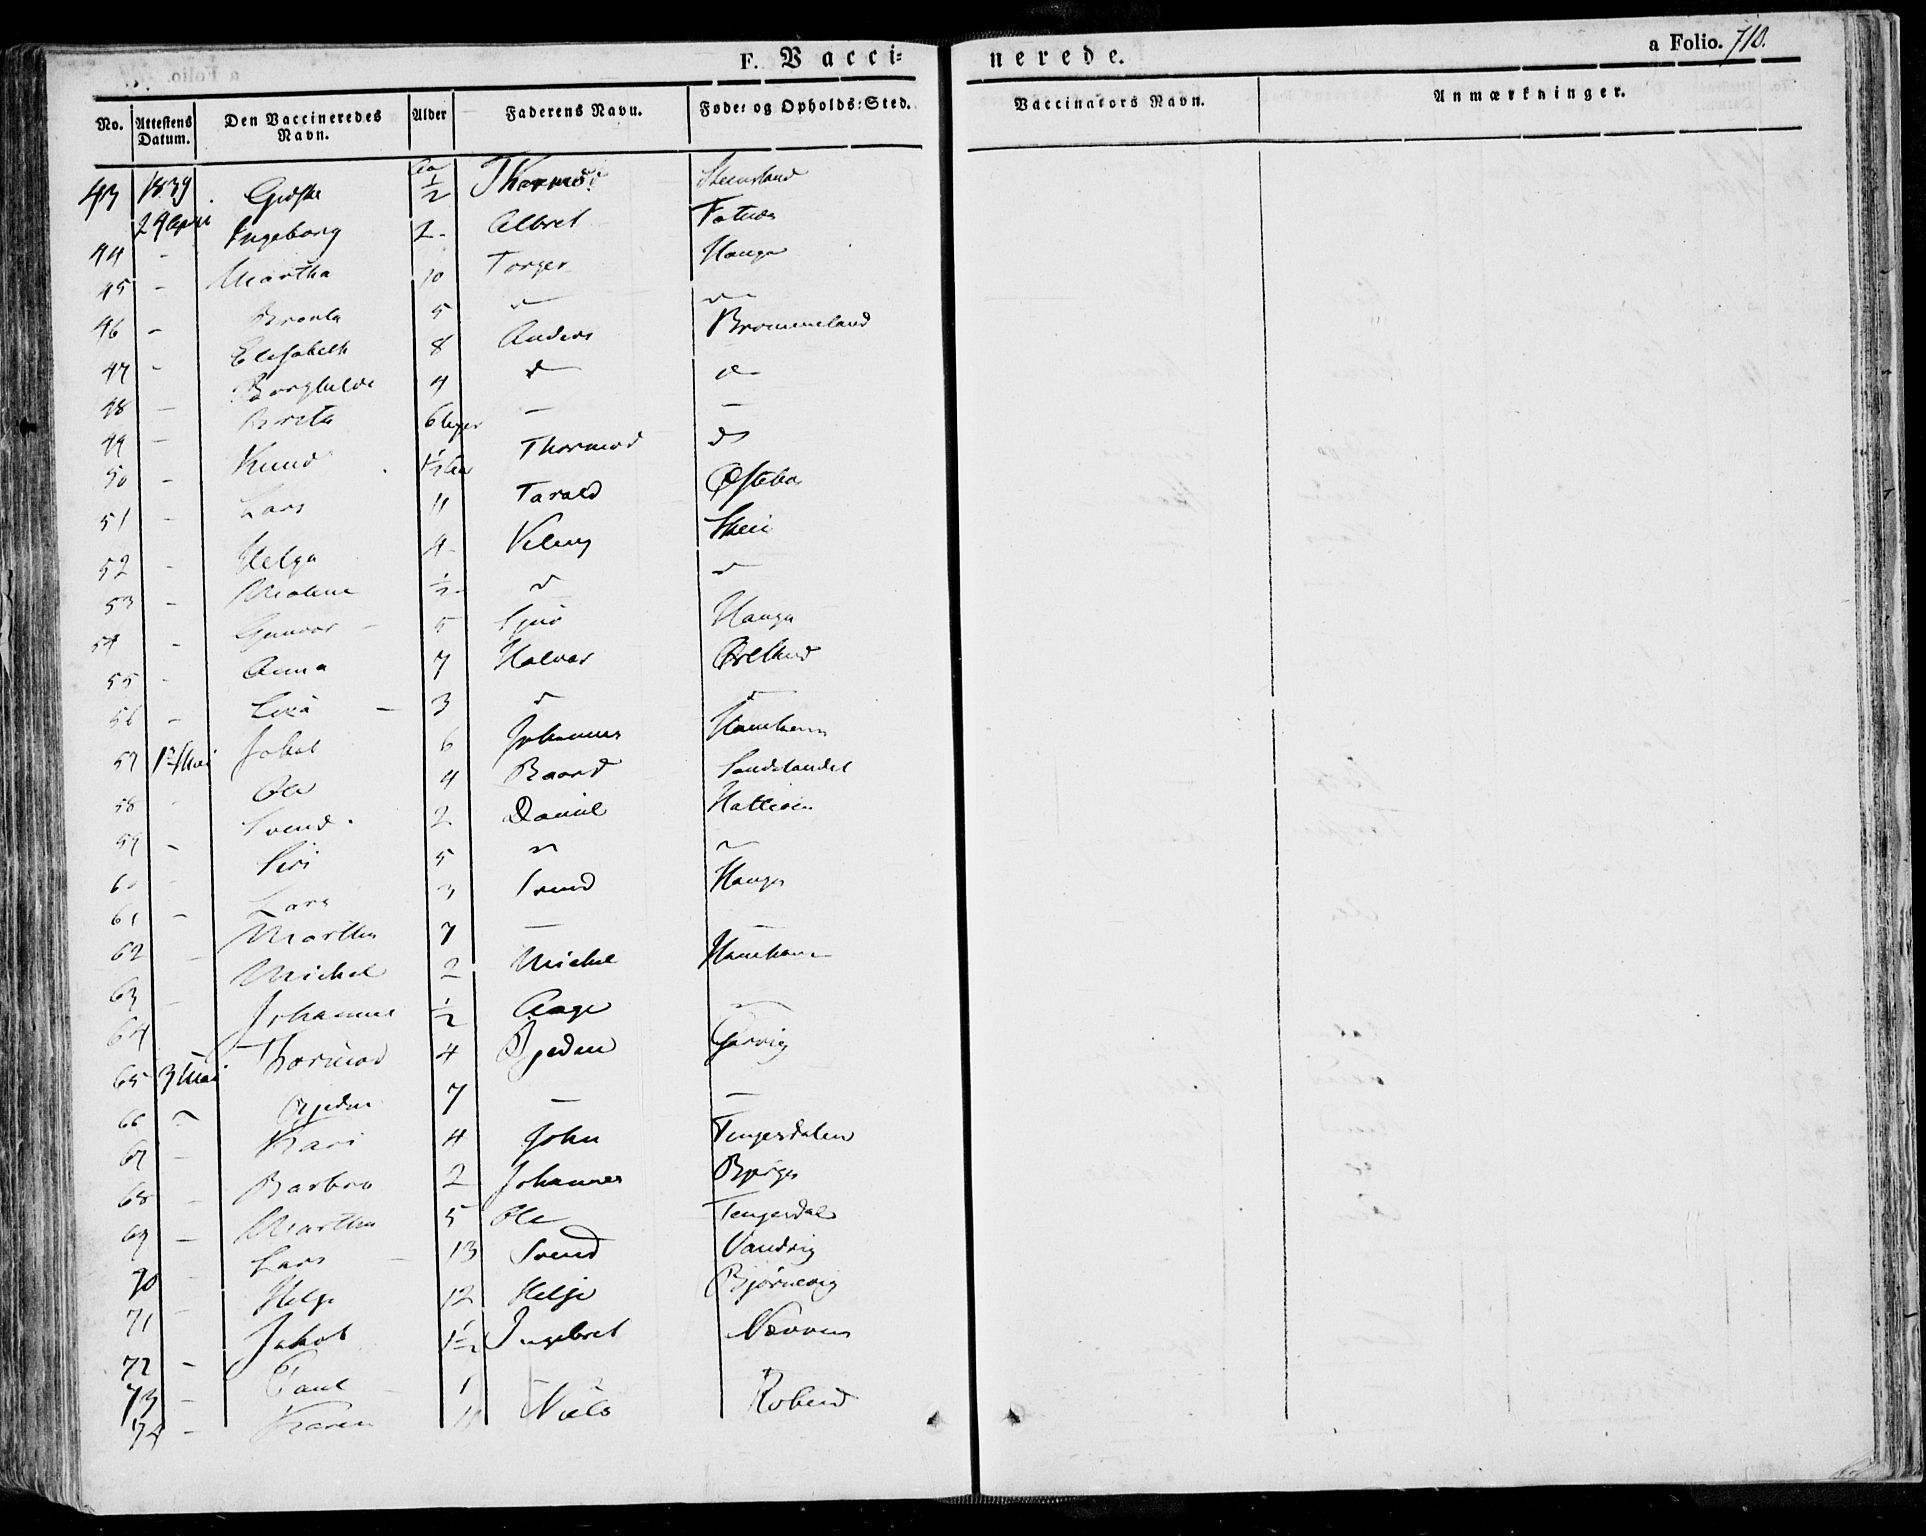 F. Vacci=
nerede.
a Folio. 710.
No. Attestens Datum. Den Vaccineredes Navn. Alder Faderens Navn. Føde: og Opholds:Sted. Vaccinators Navn. Anmærkninger.
Aar
43 1839 ½ Steensland
24 April
44 - Ingeborg 2 - Albret
45 - Martha 10 Torger Hauge
46 - Brønla 5 d d
47 - Elisabeth 8 Anders Brommeland
48 - Borghilde 4 d d
49 - Brita 6 Uger - -
50 - Knud 1½ Aar Thormod d
51 - Lars 11 Tarald Østebø
52 - Helga 4 -
53 - Malene ½ d d
54 - Gunvor - 5 Hauga
55 - Anna 7 Halvor
56 - - 3 d d
57 1 Mai Jakob 6 Johannes
58 - Ole 4 Baard Sandslandet
59 - Svend 2 Daniel
60 - Siri 5
61 - Lars 3 Svend Hauge
62 - Martha 7 - -
63 - Michel 2 Michel
64 Johannes ½ Aage
65 3 Mai Thormod 4 Gjeden Gjervig
66 Gjeden 7 - -
67 - Kari 4 John Tengesdalen
68 - Barbro 2 Johannes Bjørge
69 - Martha 5 Ole Tengesdal
70 - Lars - 13 Svend Vandvig
71 - Helge 12 Helge Bjørnevig
72 - Jakob 1½ Ingebret
73 - Paul - 1
74 - Karen 11 Niels